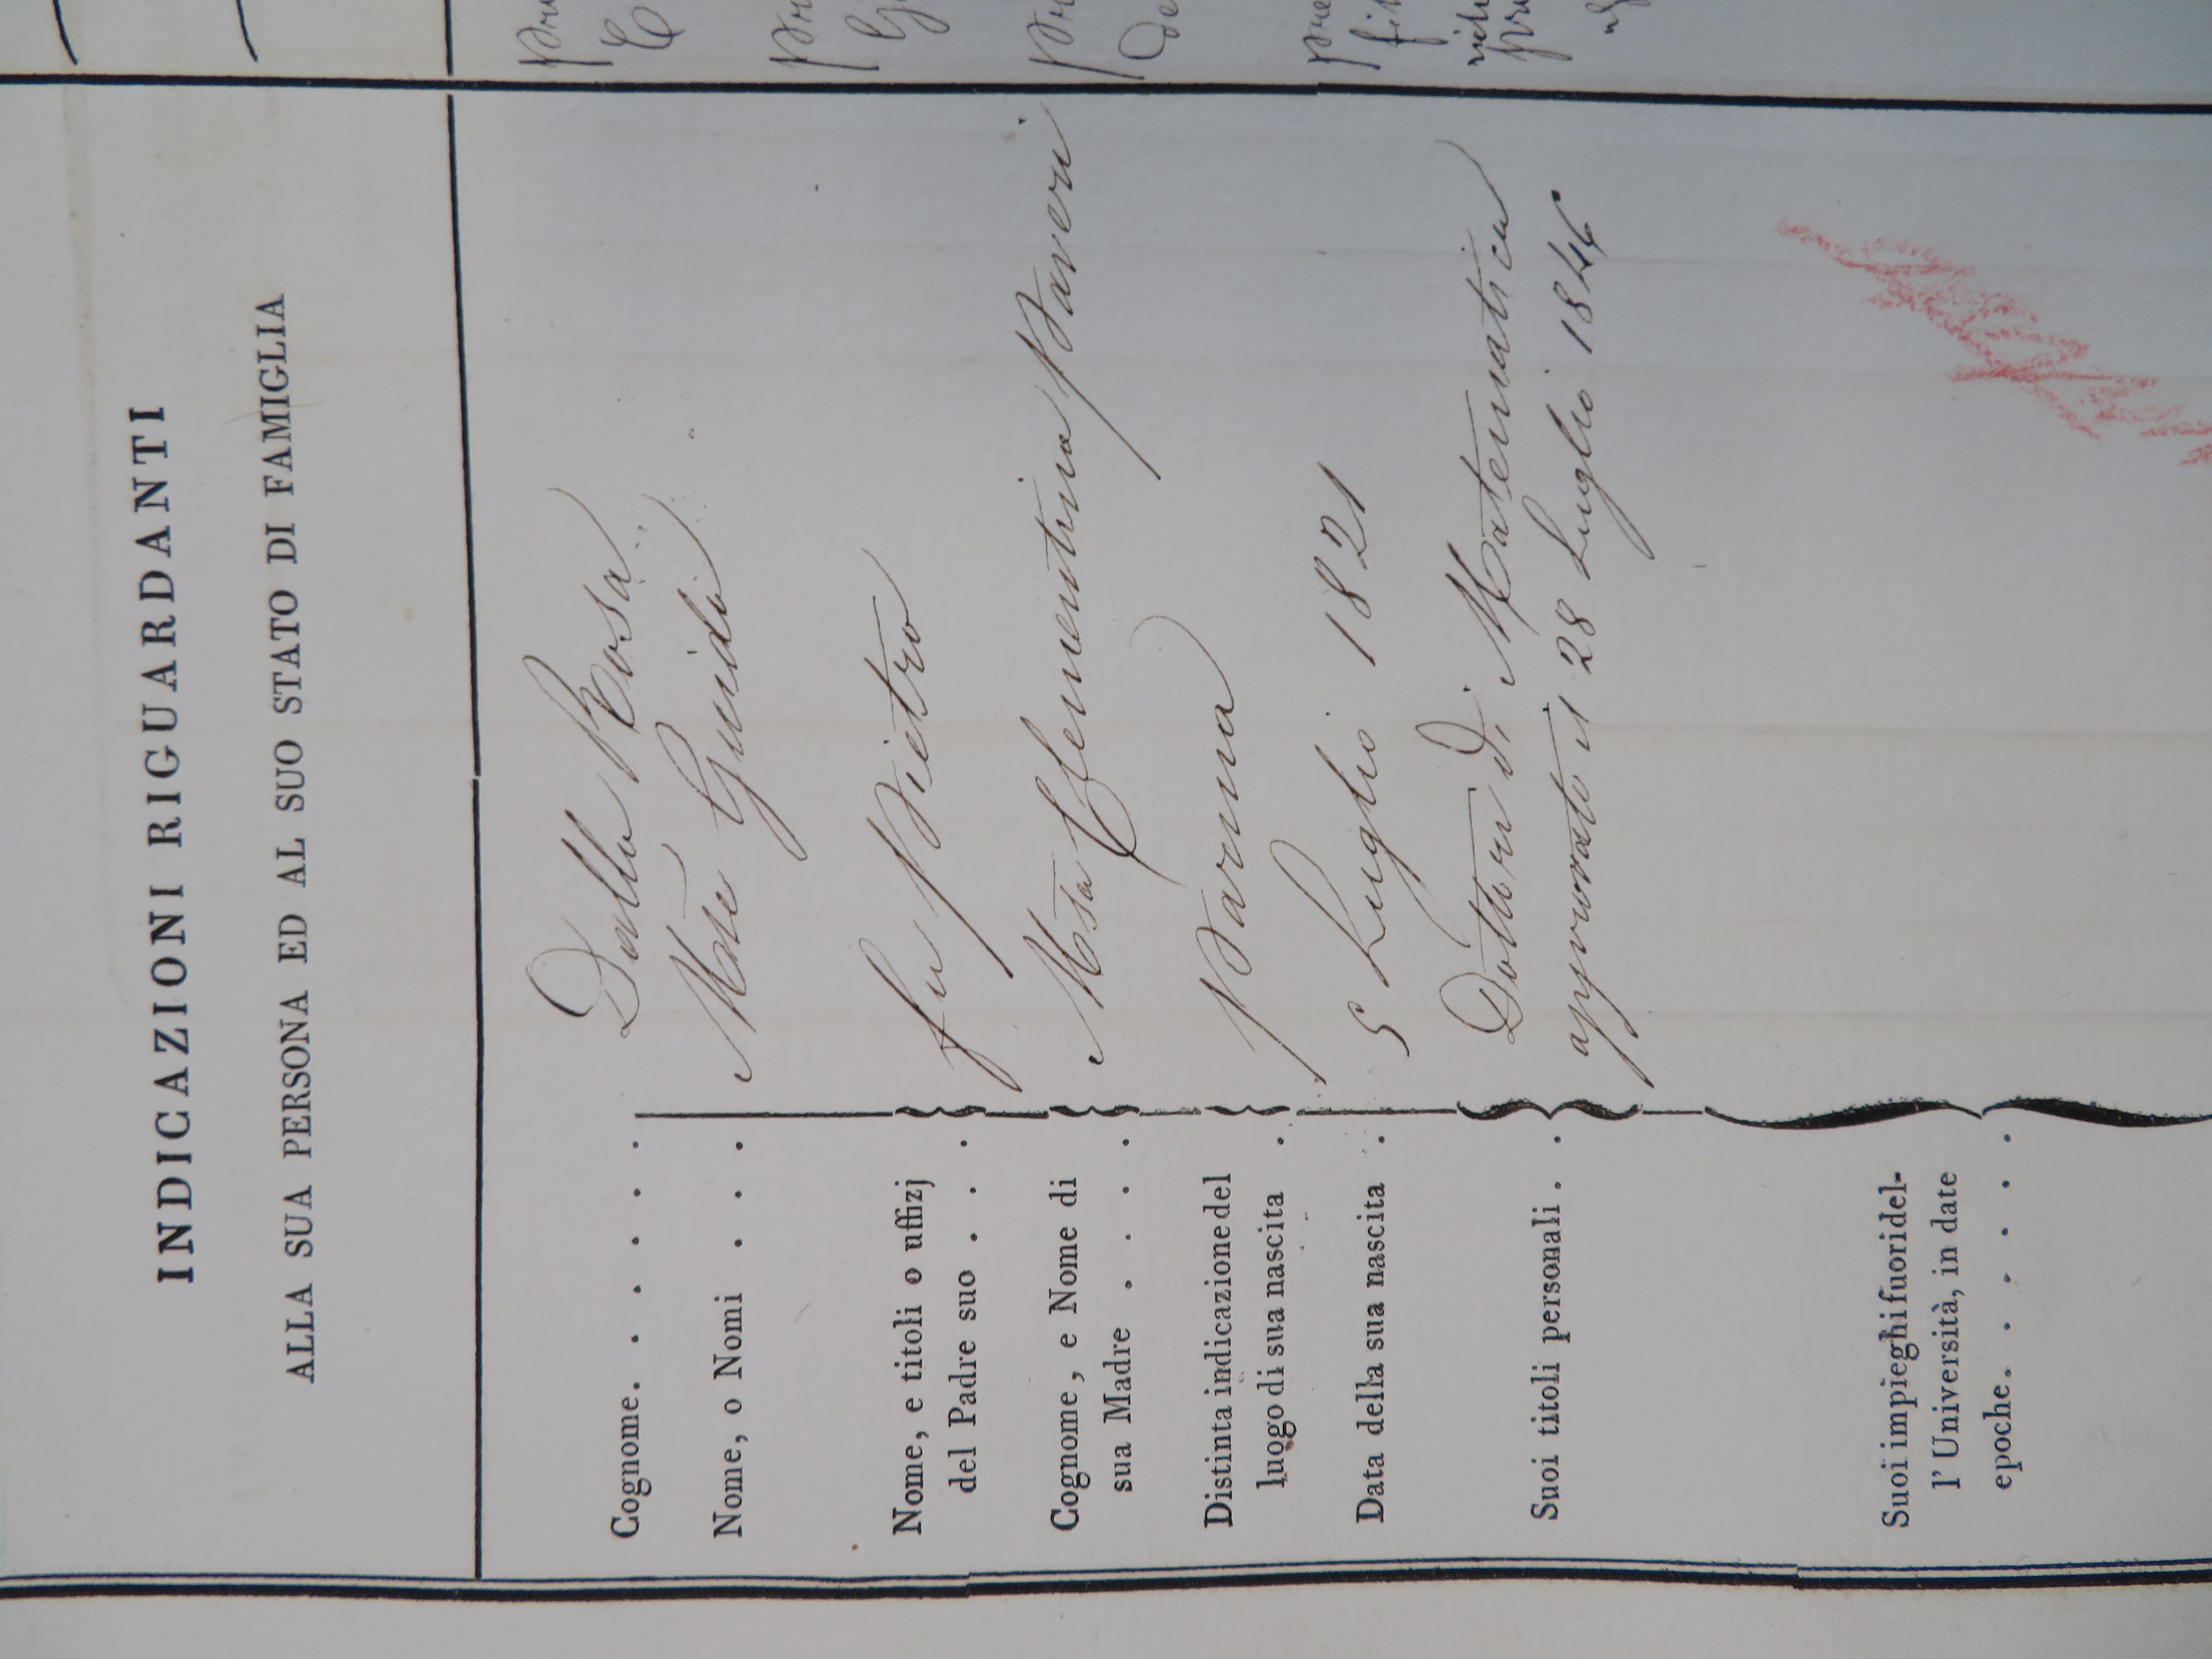 INDICAZIONI RIGUARDANTI
ALLA SUA PERSONA ED AL SUO STATO DI FAMIGLIA
Cognome. . . . . . Dalla Rosa
Nome, o Nomi . . . . Mse Guido
Nome, e titoli o uffizj
del Padre suo . . . fu Pietro
Cognome, e Nome di
sua Madre . . . . Msa Clementina Paveri
Distinta indicazione del
luogo di sua nascita . Parma
Data della sua nascita . 5 Luglio 1821
Suoi titoli personali . . Dottore di Matematica
approvato il 28 Luglio 1846.
Suoi impieghi fuori del-
l' Università, in date
epoche. . . . . .